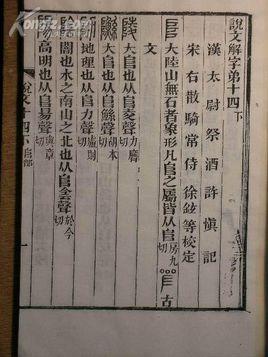 說文解字弟十四下
漢太尉祭酒許慎記
宋右散騎常侍徐鉉等校定
𨸏大陸山無石者象形凡𨸏之屬皆从𨸏房九切𨸏古
文
陵大𨸏也从𨸏夌聲力膺切
大𨸏也从𨸏鯀聲胡本切
阞地理也从𨸏力聲盧則切
陰闇也水之南山之北也从𨸏侌聲於今切
陽高明也从𨸏昜聲與章切
說文十四下 𨸏部
一